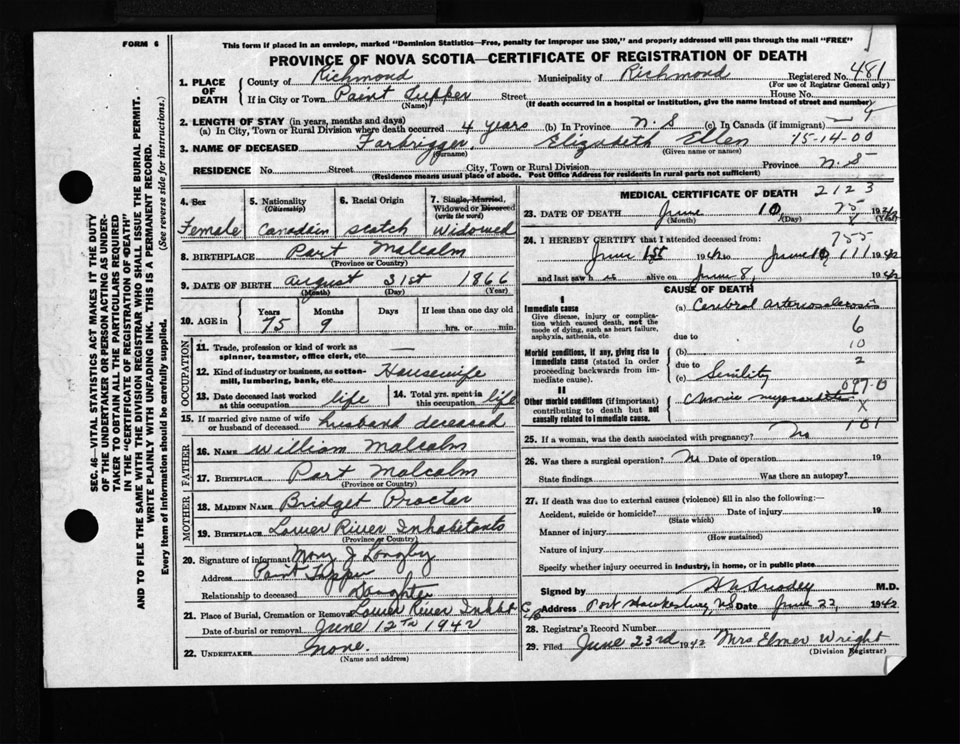 FORM 6
This form if placed in an envelope, marked "Dominion Statistics—Free, penalty for improper use $300," and properly addressed will pass through the mail "FREE"
PROVINCE OF NOVA SCOTIA—CERTIFICATE OF REGISTRATION OF DEATH
1. PLACE OF DEATH
County of Richmond Municipality of Richmond Registered No. 481
(For use of Registrar General only)
If in City or Town Point Tupper Street House No.
(Name) (If death occurred in a hospital or institution, give the name instead of street and number)
2. LENGTH OF STAY (in years, months and days)
(a) In City, Town or Rural Division where death occurred 4 years (b) In Province N.S (c) In Canada (if immigrant)
3. NAME OF DECEASED Forbrigger, Elizabeth Ellen 15-14-00
(Surname) (Given name or names)
RESIDENCE No. Street City, Town or Rural Division Province N.S
(Residence means usual place of abode. Post Office Address for residents in rural parts not sufficient)
4. Sex Female
5. Nationality (Citizenship) Canadain
6. Racial Origin Scotch
7. Single, Married, Widowed or Divorced (write the word) Widowed
8. BIRTHPLACE Port Malcolm
(Province or Country)
9. DATE OF BIRTH August 31st 1866
(Month) (Day) (Year)
10. AGE in Years Months Days If less than one day old
75 9 hrs. or min.
OCCUPATION
11. Trade, profession or kind of work as spinner, teamster, office clerk, etc. —
12. Kind of industry or business, as cotton-mill, lumbering, bank, etc. Housewife
13. Date deceased last worked at this occupation life
14. Total yrs. spent in this occupation life
15. If married give name of wife or husband of deceased husband deceased
FATHER
16. NAME William Malcolm
17. BIRTHPLACE Port Malcolm
(Province or Country)
MOTHER
18. MAIDEN NAME Bridget Procter
19. BIRTHPLACE Lower River Inhabitants
(Province or Country)
20. Signature of informant Mary J Langley
Address Point Tupper
Relationship to deceased Daughter
21. Place of Burial, Cremation or Removal Lower River Inhabt
Date of burial or removal June 12th 1942
22. UNDERTAKER None.
(Name and address)
MEDICAL CERTIFICATE OF DEATH
2123
23. DATE OF DEATH June 10, 75 19
(Month) (Day) (Year)
24. I HEREBY CERTIFY that I attended deceased from: 755
June 1942 to June 10 1942
and last saw h alive on June 8, 1942
CAUSE OF DEATH
I
Immediate cause
Give disease, injury or complication which caused death, not the mode of dying, such as heart failure, asphyxia, asthenia, etc
(a) Cerebral arteriosclerosis
6
due to
10
Morbid conditions, if any, giving rise to immediate cause (stated in order proceeding backwards from immediate cause).
(b)
due to 2
(c) Senility
097-0
II
Other morbid conditions (if important) contributing to death but not causally related to immediate cause.
Chronic myocarditis
X
101
25. If a woman, was the death associated with pregnancy? No
26. Was there a surgical operation? No Date of operation 19
State findings Was there an autopsy?
27. If death was due to external causes (violence) fill in also the following:—
Accident, suicide or homicide? Date of injury 19
(State which)
Manner of injury
(How sustained)
Nature of injury
Specify whether injury occurred in industry, in home, or in public place
Signed by M.D.
Address Port Hawkesbury, N.S Date June 22, 1942
28. Registrar's Record Number
29. Filed June 23rd 1942 Mrs Elmer Wright
(Division Registrar)
SEC. 46—VITAL STATISTICS ACT MAKES IT THE DUTY
OF THE UNDERTAKER OR PERSON ACTING AS UNDER-
TAKER TO OBTAIN ALL THE PARTICULARS REQUIRED
IN THE "CERTIFICATE OF REGISTRATION OF DEATH"
AND TO FILE THE SAME WITH THE DIVISION REGISTRAR WHO SHALL ISSUE THE BURIAL PERMIT.
WRITE PLAINLY WITH UNFADING INK. THIS IS A PERMANENT RECORD.
Every item of information should be carefully supplied. (See reverse side for instructions.)